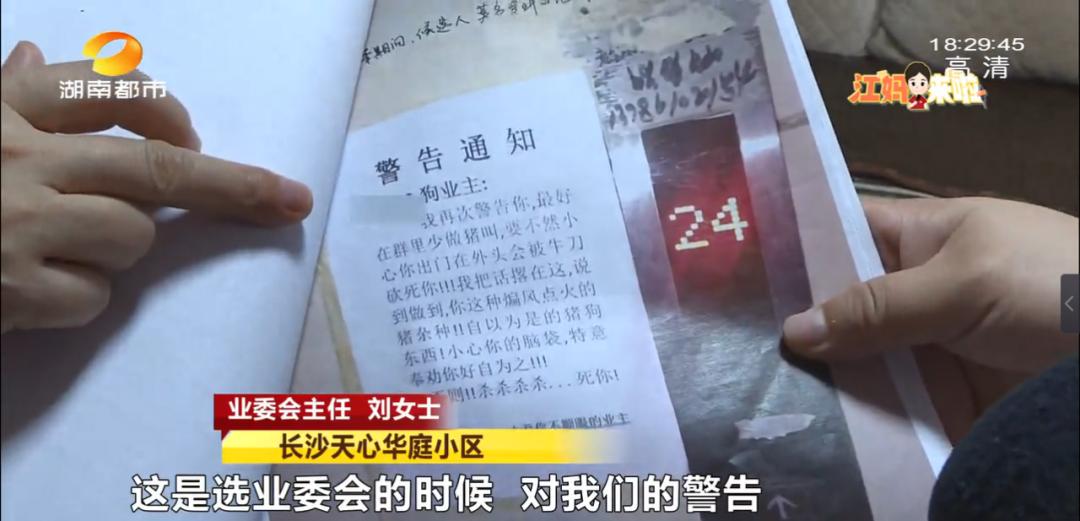 湖南都市
18:29:45
高清
江妈来啦
候选人
警告通知
狗业主:
我再次警告你,最好
在群里少做猪叫,要不然小
心你出门在外头会被牛刀
砍死你!!!我把话撂在这,说
到做到,你这种煽风点火的
猪杂种!!自以为是的猪狗
东西!小心你的脑袋,特意
奉劝你好自为之!!!
则!!杀杀杀杀...死你!
你不顺眼的业主
24
业委会主任 刘女士
长沙天心华庭小区
这是选业委会的时候 对我们的警告